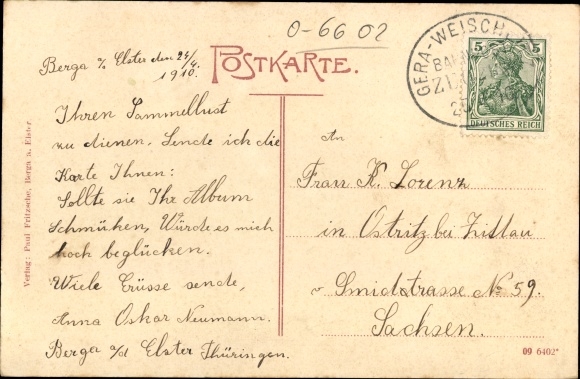 0-6602
Berga a/ Elster den 24/4.
1910.
POSTKARTE.
GERA-WEISCHL
BAH
ZU
5 5
DEUTSCHES REICH
Ihren Sammellust
zu dienen, Sende ich die
Karte Ihnen:
Sollte sie Ihr Album
Schmüken, Würde es mich
hoch beglücken.
Wiele Grüsse sende,
Anna Oskar Neumann.
Berga a/d Elster Thüringen.
An
Frau K. Lorenz
in Ostritz bei Zittau
Smidstrasse No 59.
Sachsen.
Verlag: Paul Fritzsche, Berga a. Elster.
09 6402*